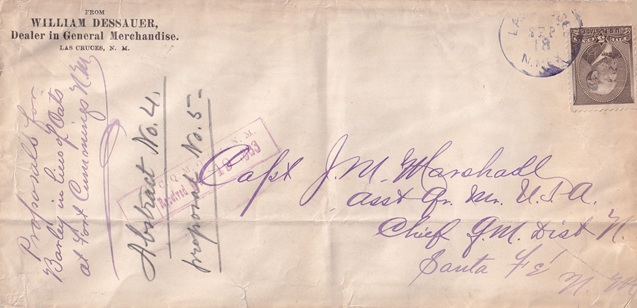 FROM
WILLIAM DESSAUER,
Dealer in General Merchandise.
LAS CRUCES, N. M.
LA
SEP
18
N.M.
Proposals for
Barley in lieu of Oats
at Fort Cummings N.M
Abstract No. 4.
proposal No. 5-
Received
Capt J. M. Marshall
Asst Qr. Mr. U.S.A.
Chief Q.M. Dist N.
Santa Fé
N. M